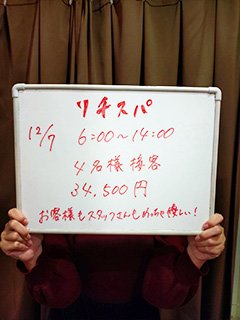 リチスパ
12/7 6:00～14:00
4名様接客
34,500円
お客様もスタッフさんもめっちゃ優しい!